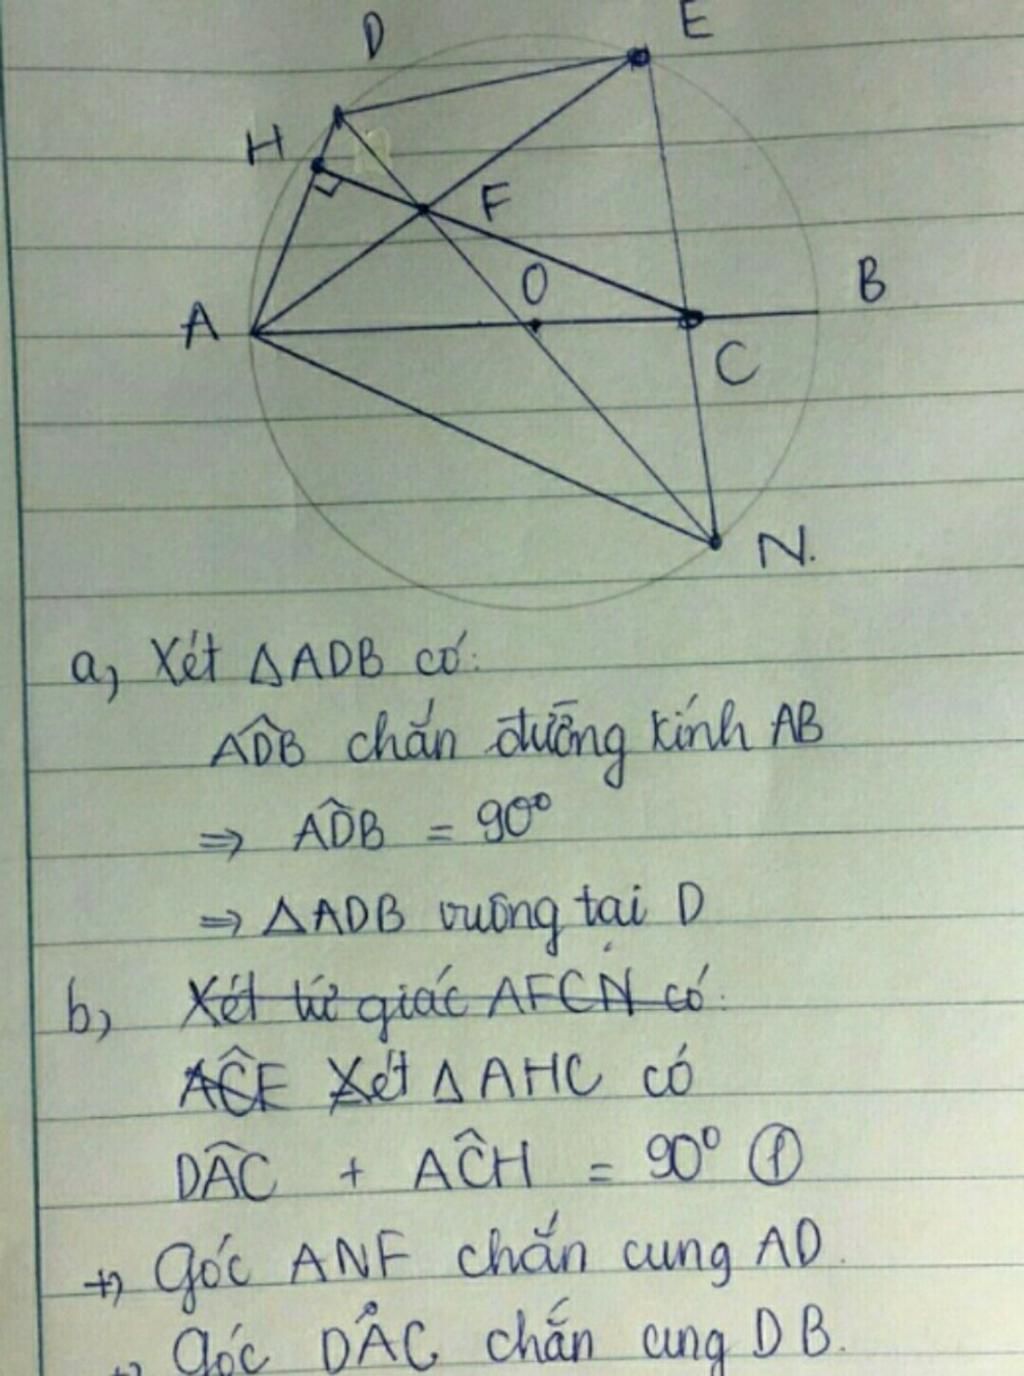 D
E
H
F
O
B
A
C
N.
a, Xét ΔADB có:
ADB̂ chắn đường kính AB
⇒ ADB̂ = 90°
⇒ ΔADB vuông tại D
b, Xét tứ giác AFCN có:
AĈE Xét ΔAHC có
DÂC + AĈH = 90° ①
+) Góc ANF chắn cung AD.
+) Góc DAC chắn cung DB.